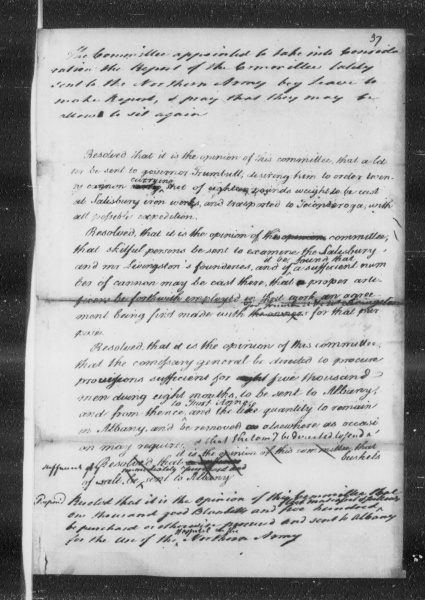 37
The Committee appointed to take into Conside
ration the Report of the Committee lately
sent to the Northern Army beg leave to
make Report, & pray that they may be
allowed to sit again
Resolved that it is the opinion of this committee, that a let
ter be sent to governor Trumbull, desiring him to order twen
carrying
ty cannon shot of eighteen pounds weight to be cast
at Salesbury iron works, and transported to Ticonderoga, with
all possible expedition.
Resolved, that it is the opinion of the committee,
that skilful persons be sent to examine the Salesbury
it be found that
and mr Livingston's founderies, and if a sufficient num
ber of cannon may be cast there, that proper arti
ficers be forthwith employed in that work, an agree
ment being first made with for that pur
pose.
Resolved, that it is the opinion of this committee,
that the comissary general be directed to procure
provisions sufficient for eight five thousand
men during eight months, to be sent to Albany,
to Fort
and from thence, and the like quantity to remain
in Albany, and be removed elsewhere as occasi
on may require, & that be directed to send a
it is the opinion of this committee, that
sufficient Resolved that bushels
immediately purchased and
of salt be sent to Albany
Resolved that it is the opinion of this Committee that
one thousand good Blankets and five hundred
be purchased or otherwise procured and sent to Albany
Hospital
for the use of the Northern Army